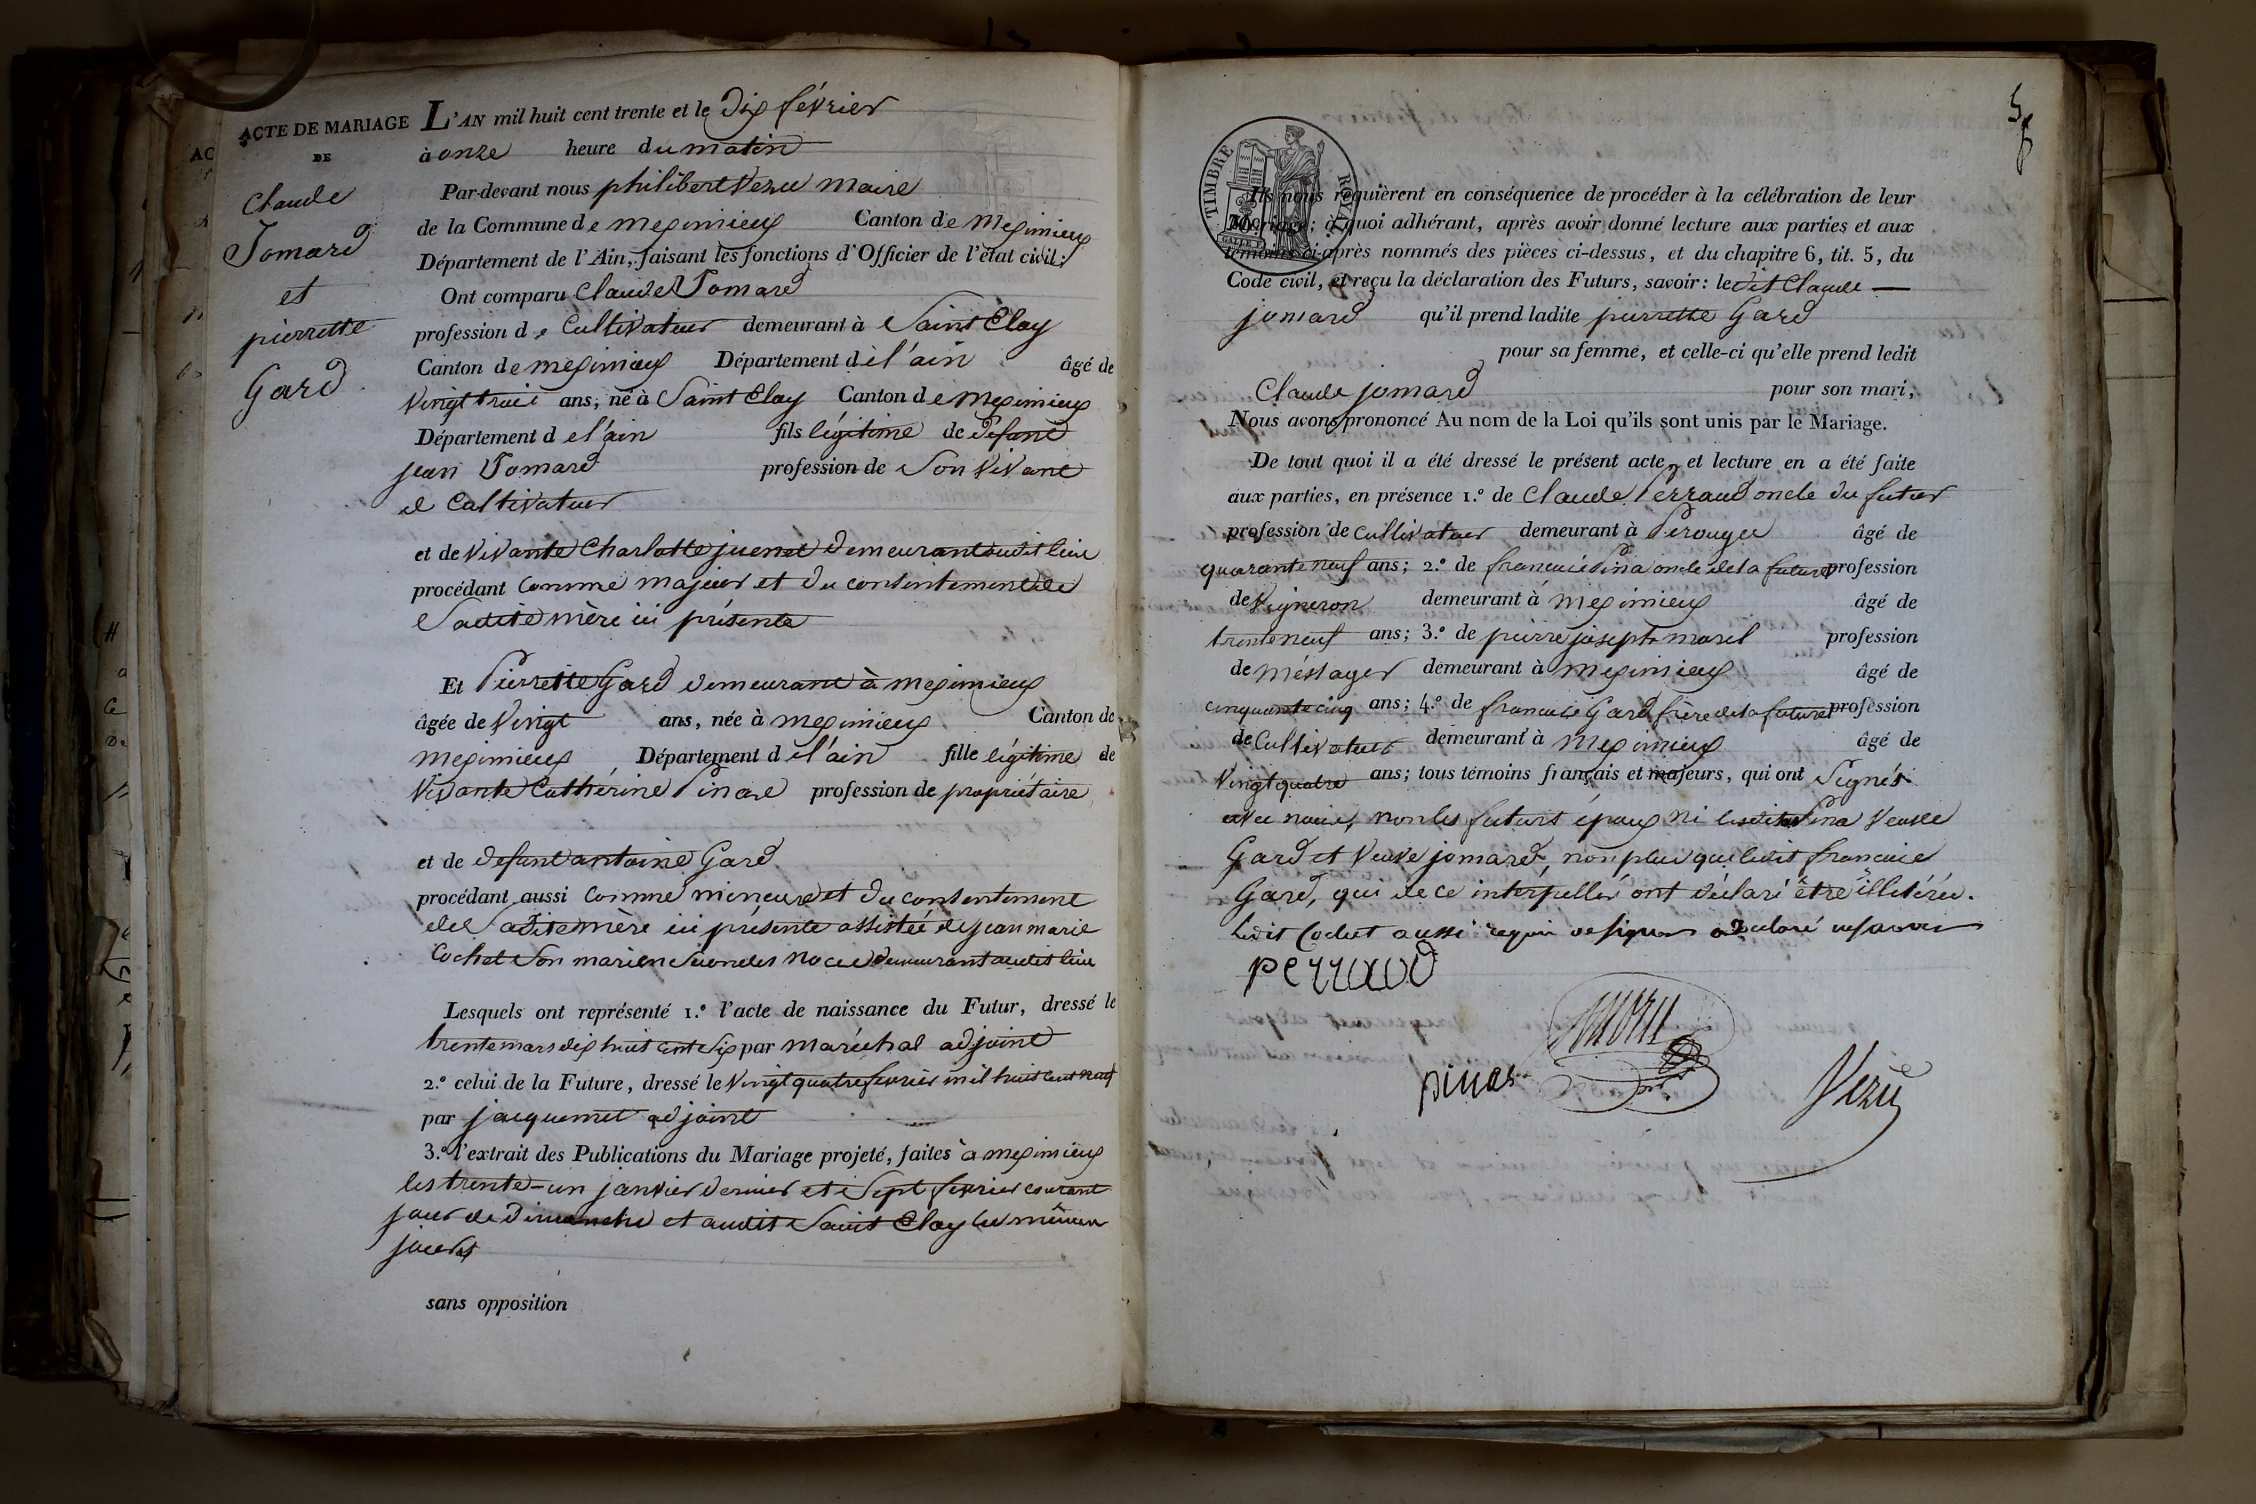 ACTE DE MARIAGE
DE
Claude
Jomard
et
pierrette
Gard
L'AN mil huit cent trente et le Dix février
à onze heure du matin
Par-devant nous philibert Vezu Maire
de la Commune de meximieux Canton de Meximieux
Département de l'Ain, faisant les fonctions d'Officier de l'état civil;
Ont comparu Claude Jomard
profession de Cultivateur demeurant à Saint Eloy
Canton de meximieux Département de l'ain âgé de
Vingt trois ans, né à Saint Eloy Canton de Meximieux
Département de l'ain fils légitime de Defunt
jean Jomard profession de Son Vivant
Cultivateur
et de Vivante Charlotte juenet Demeurant audit lieu
procédant Comme majeur et du consentement de
Sadite mère ici présente
Et Pierrette Gard demeurant à meximieux
âgée de Vingt ans, née à meximieux Canton de
meximieux Département de l'ain fille légitime de
Vivante Cathérine Pinard profession de propriétaire
et de defunt antoine Gard
procédant aussi Comme mineure et du consentement
de Sadite mère ici présente assistée de jean marie
Cochet Son mari en Secondes Noces demeurant audit lieu
Lesquels ont représenté 1.º l'acte de naissance du Futur, dressé le
trente mars dix huit cent Six par maréchal adjoint
2.º celui de la Future, dressé le Vingt quatre fevrier mil huit cent neuf
par jacquemet adjoint
3.º l'extrait des Publications du Mariage projeté, faites à meximieux
les trente-un janvier dernier et Sept fevrier courant
jour de Dimanche et audit Saint Eloy les mêmes
jours
sans opposition
5
TIMBRE ROYAL
Ils nous requièrent en conséquence de procéder à la célébration de leur
Mariage; à quoi adhérant, après avoir donné lecture aux parties et aux
témoins ci-après nommés des pièces ci-dessus, et du chapitre 6, tit. 5, du
Code civil, et reçu la déclaration des Futurs, savoir: ledit Claude
jomard qu'il prend ladite pierrette Gard
pour sa femme, et celle-ci qu'elle prend ledit
Claude jomard pour son mari,
Nous avons prononcé Au nom de la Loi qu'ils sont unis par le Mariage.
De tout quoi il a été dressé le présent acte, et lecture en a été faite
aux parties, en présence 1.º de Claude Perraud oncle du futur
profession de Cultivateur demeurant à Perouges âgé de
quarante neuf ans; 2.º de francois Pina oncle de la future profession
de Vigneron demeurant à meximieux âgé de
trente neuf ans; 3.º de pierre joseph morel profession
de Méssager demeurant à meximieux âgé de
cinquante cinq ans; 4.º de francois Gard frère de la future profession
de Cultivateur demeurant à Meximieux âgé de
Vingt quatre ans; tous témoins français et majeurs, qui ont Signés
avec nous, non les futurs époux ni Pina Veuve
Gard et Veuve jomard, non plus que ledit francois
Gard, qui de ce intérpellés ont déclaré être illitérés.
Ledit Cochet aussi requis de signer a déclaré ne savoir
Perraud
pinas
Vezu